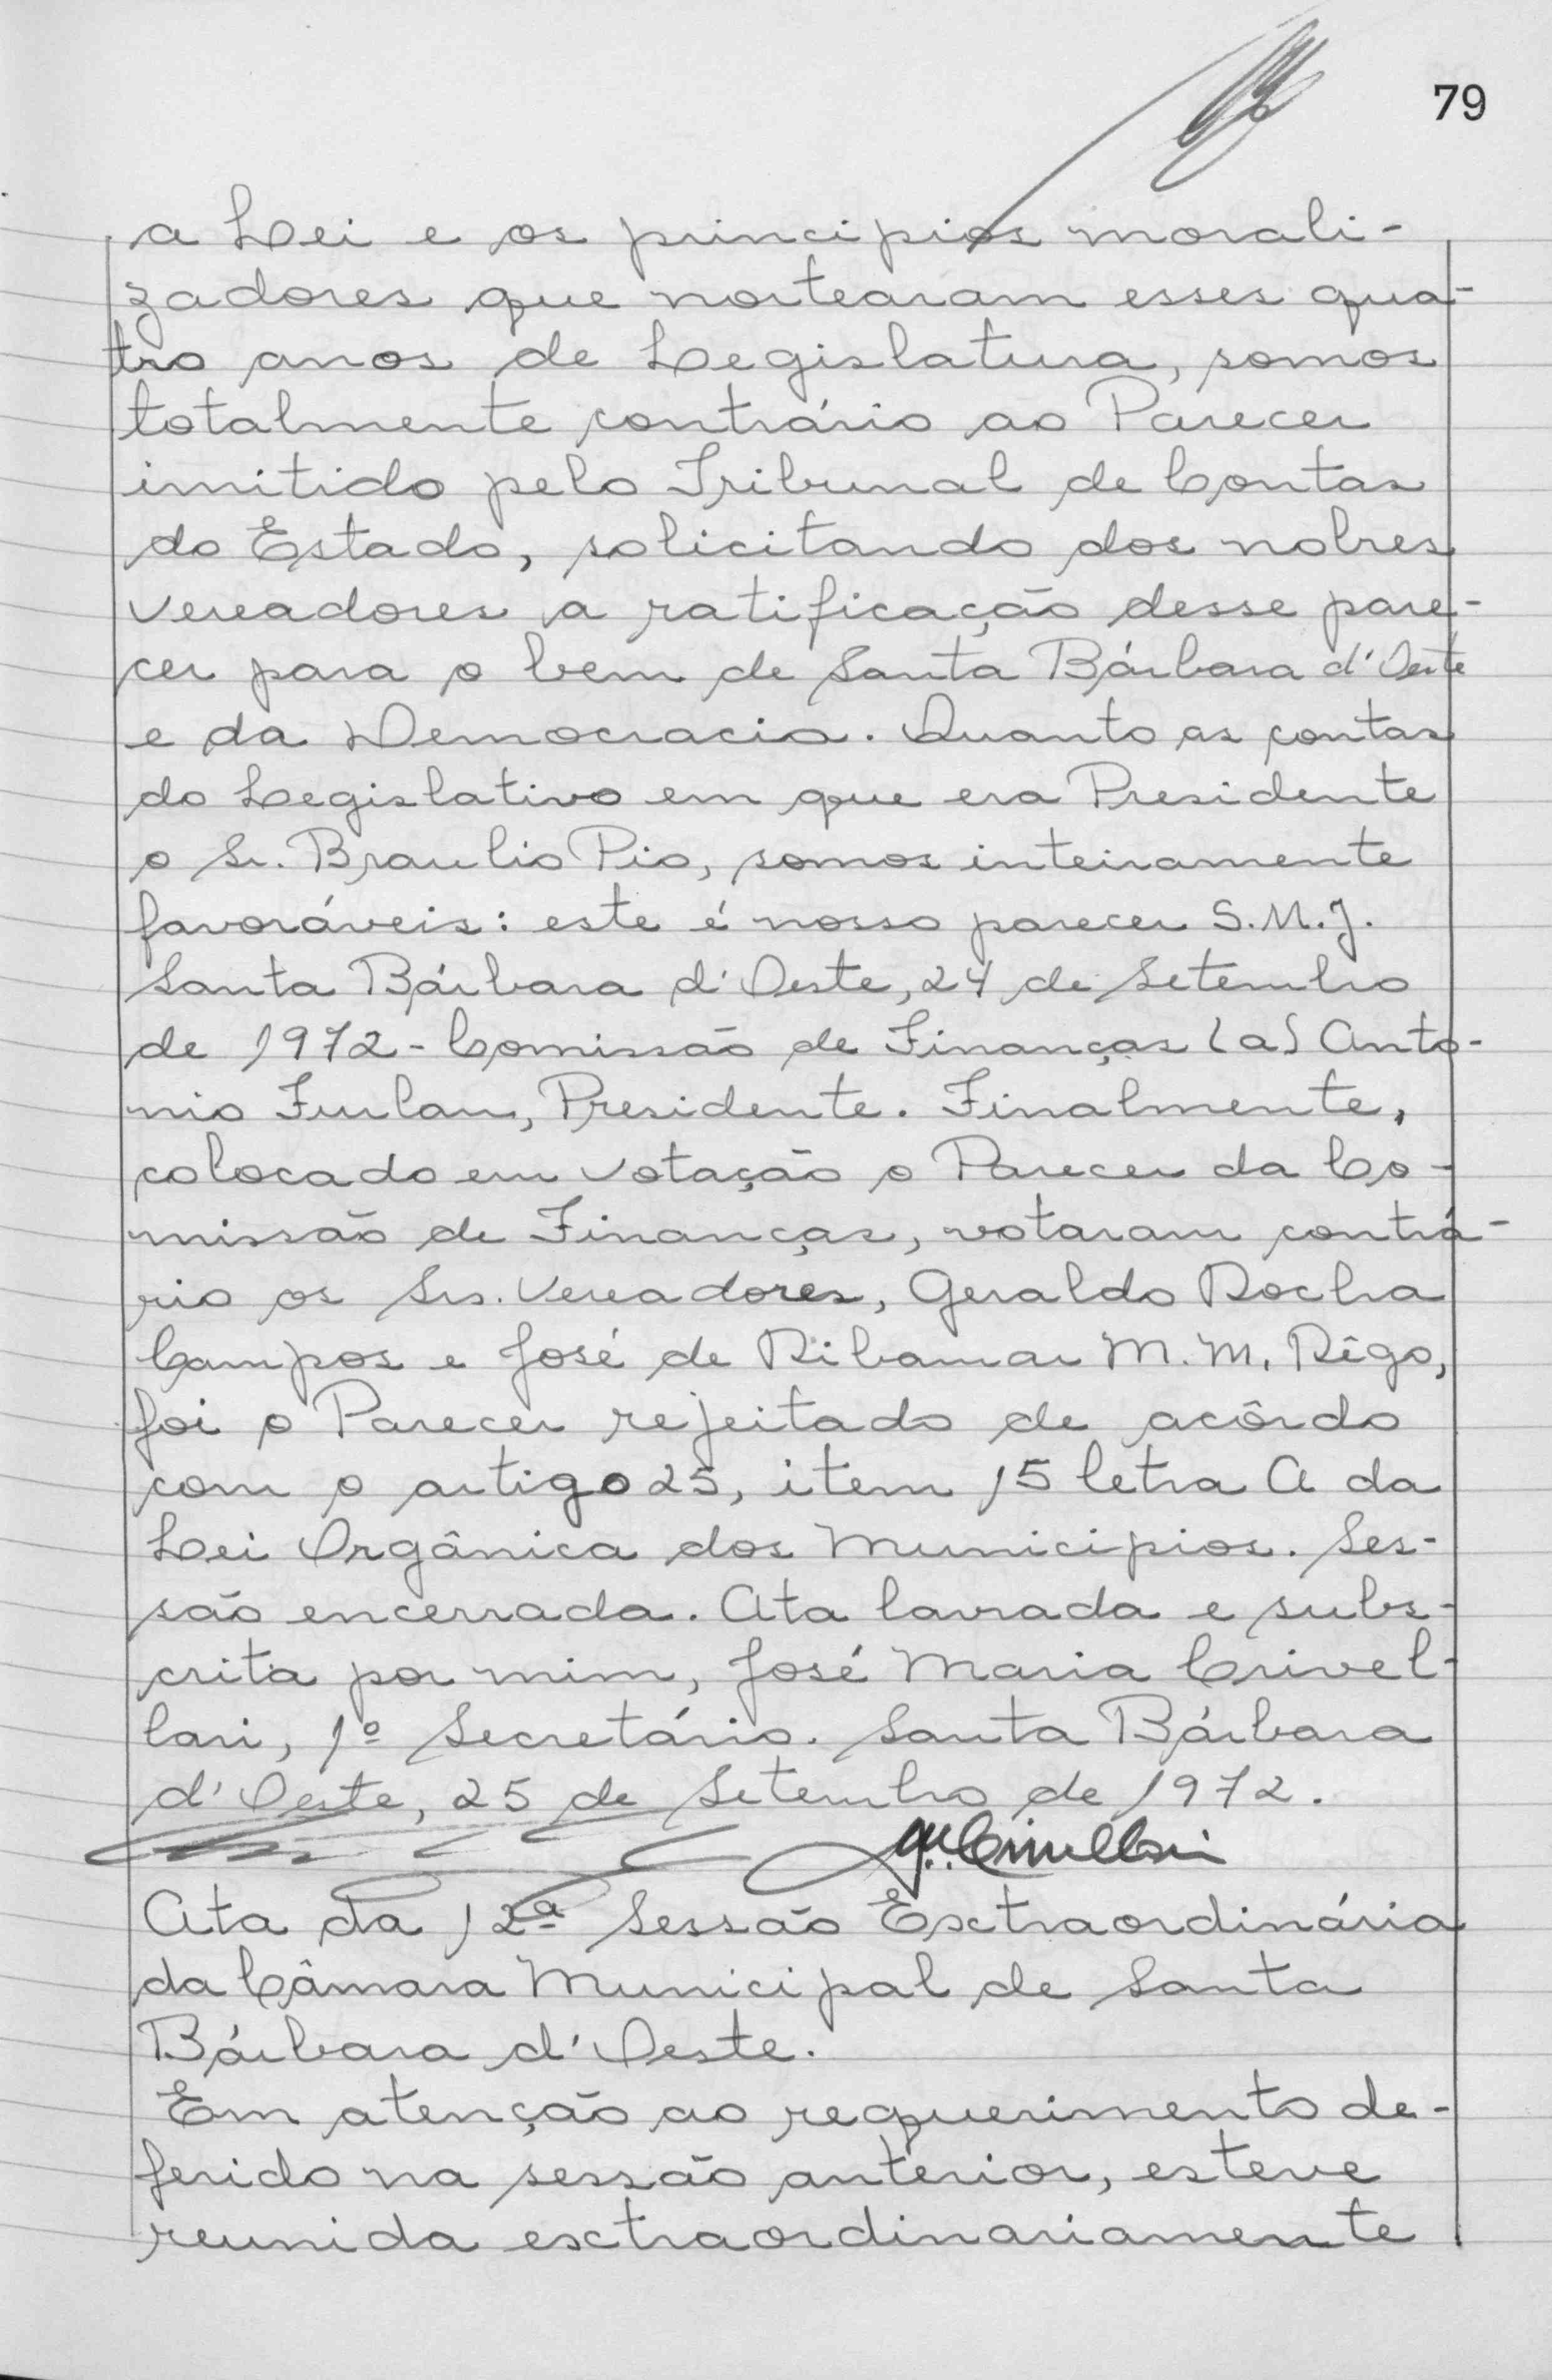 79
a Lei e os principios morali-
zadores que nortearam esses qua-
tro anos de Legislatura, somos
totalmente contrário ao Parecer
imitido pelo Tribunal de Contas
do Estado, solicitando dos nobres
vereadores a ratificação desse pare-
cer para o bem de Santa Bárbara d'Oeste
e da Democracia. Quanto as contas
do Legislativo em que era Presidente
o Sr. Braulio Pio, somos inteiramente
favoráveis: este é nosso parecer S.M.J.
Santa Bárbara d'Oeste, 24 de Setembro
de 1972 - Comissão de Finanças (a) Anto-
nio Furlan, Presidente. Finalmente,
colocado em votação o Parecer da Co-
missão de Finanças, votaram contrá-
rio os Srs. Vereadores, Geraldo Rocha
Campos e José de Ribamar M. M. Rêgo,
foi o Parecer rejeitado de acôrdo
com o artigo 25, item 15 letra A da
Lei Orgânica dos Municipios. Ses-
são encerrada. Ata lavrada e subs-
crita por mim, José Maria Crivel-
lari, 1º Secretário. Santa Bárbara
d'Oeste, 25 de Setembro de 1972.
Ata da 12ª Sessão Extraordinária
da Câmara Municipal de Santa
Bárbara d'Oeste.
Em atenção ao requerimento de-
ferido na sessão anterior, esteve
reunida extraordinariamente